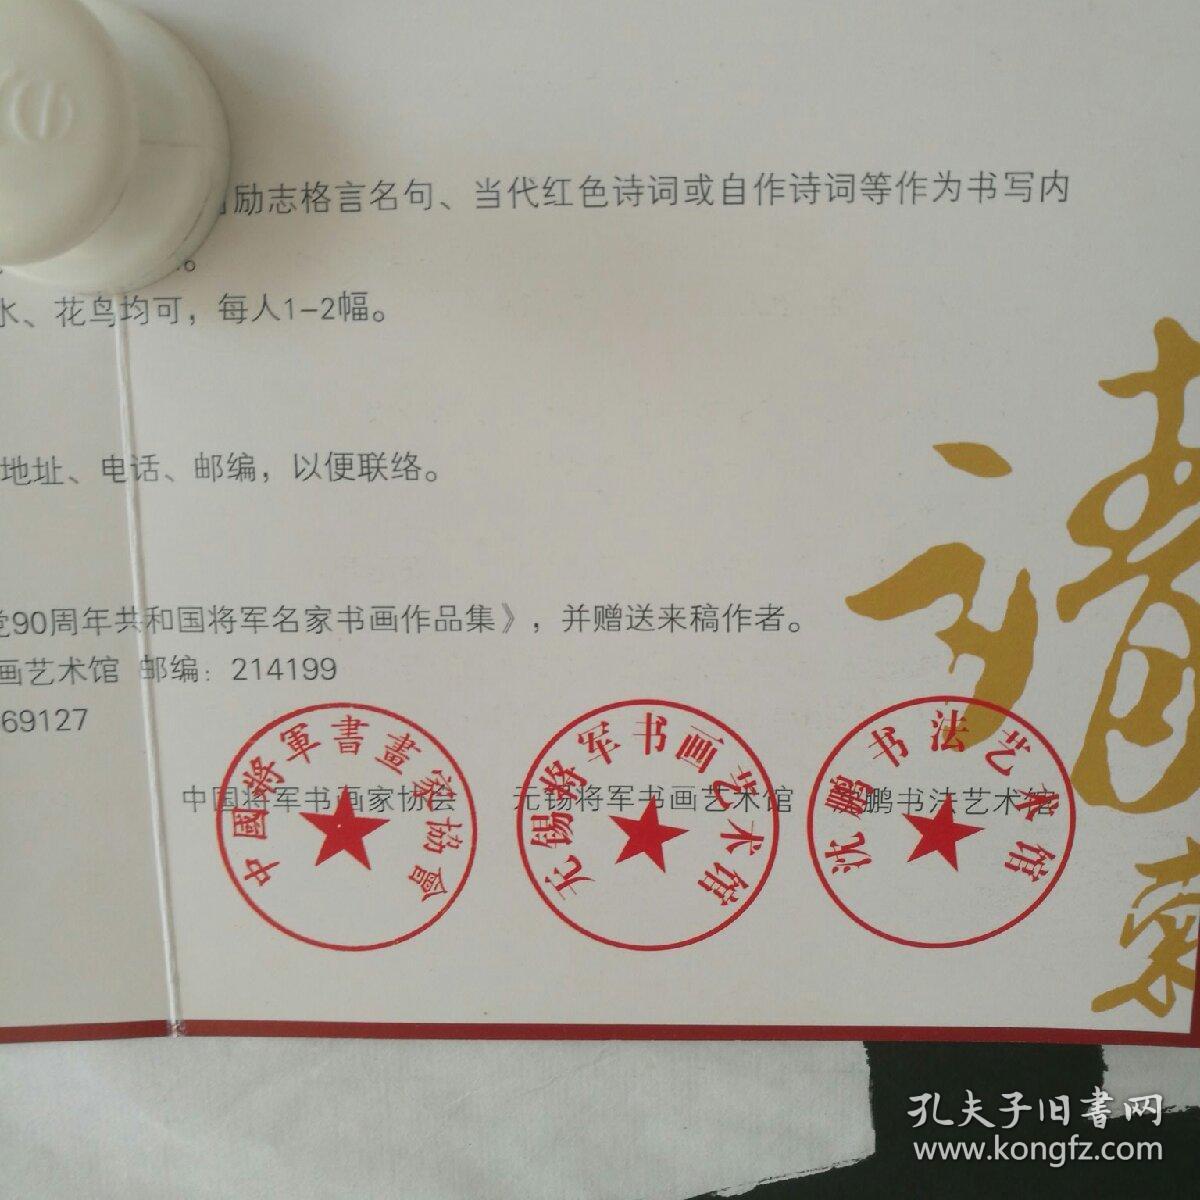 励志格言名句、当代红色诗词或自作诗词等作为书写内
。
水、花鸟均可，每人1-2幅。
地址、电话、邮编，以便联络。
党90周年共和国将军名家书画作品集》，并赠送来稿作者。
画艺术馆 邮编：214199
69127
中国将军书画家协会 无锡将军书画艺术馆 沈鹏书法艺术馆
中國將軍書畫家協會
无锡将军书画艺术馆
沈鹏书法艺术馆
請
柬
孔夫子旧书网
www.kongfz.com